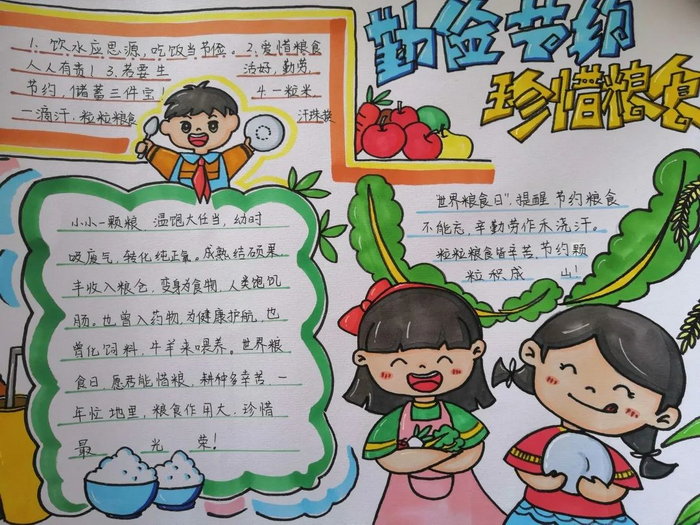 勤俭节约
珍惜粮食
1、饮水应思源,吃饭当节俭。2、爱惜粮食
人人有责!3、若要生 活好,勤劳、
节约、储蓄三件宝! 4、一粒米
一滴汗,粒粒粮食 汗珠换
小小一颗粮,温饱大仕当,幼时
吸废气,转化纯正氧。成熟结硕果
丰收入粮仓,变身为食物,人类饱饥
肠。也曾入药物,为健康护航,也
曾化饲料,牛羊来喂养。世界粮
食日,愿君能惜粮,耕种多辛苦,一
年忙地里,粮食作用大,珍惜
最 光 荣!
世界粮食日",提醒节约粮食
不能忘,辛勤劳作禾浇汗。
粒粒粮食皆辛苦,节约颗
粒积成 山!